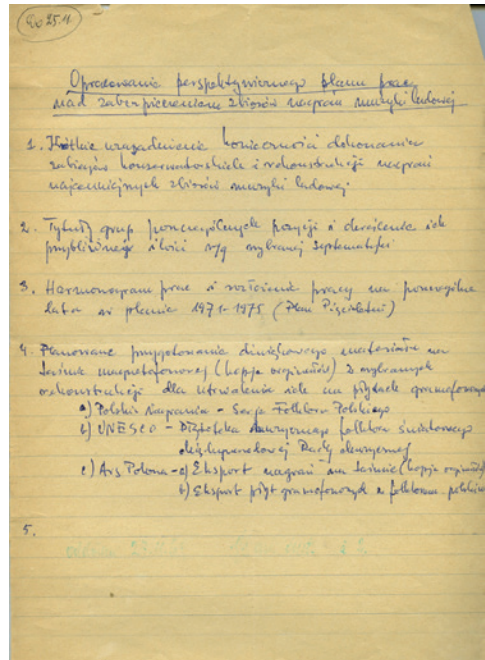 do 25.11
Opracowanie perspektywicznego planu pracy
nad zabezpieczeniem zbiorów nagrań muzyki ludowej
1. Krótkie uzasadnienie konieczności dokonania
zabiegów konserwatorskich i rekonstrukcji nagrań
najcenniejszych zbiorów muzyki ludowej.
2. Tytuły grup poszczególnych pozycji i określenie ich
przybliżonej ilości wg wybranej systematyki
3. Harmonogram prac i rozłożenie pracy na poszczególne
lata w planie 1971-1975 (Plan Pięcioletni)
4. Planowane przygotowania dźwiękowego materiału na
taśmie magnetofonowej (kopie oryginałów) z wybranych
rekonstrukcji dla utrwalenia ich na płytach gramofonowych
a) Polskie Nagrania - Seria Folkloru Polskiego
b) UNESCO - Płytoteka folkloru światowego
Międzynarodowej Rady
c) Ars Polona - a) Eksport nagrań na taśmie (kopie oryginałów)
b) Eksport płyt gramofonowych z folklorem polskim
5.